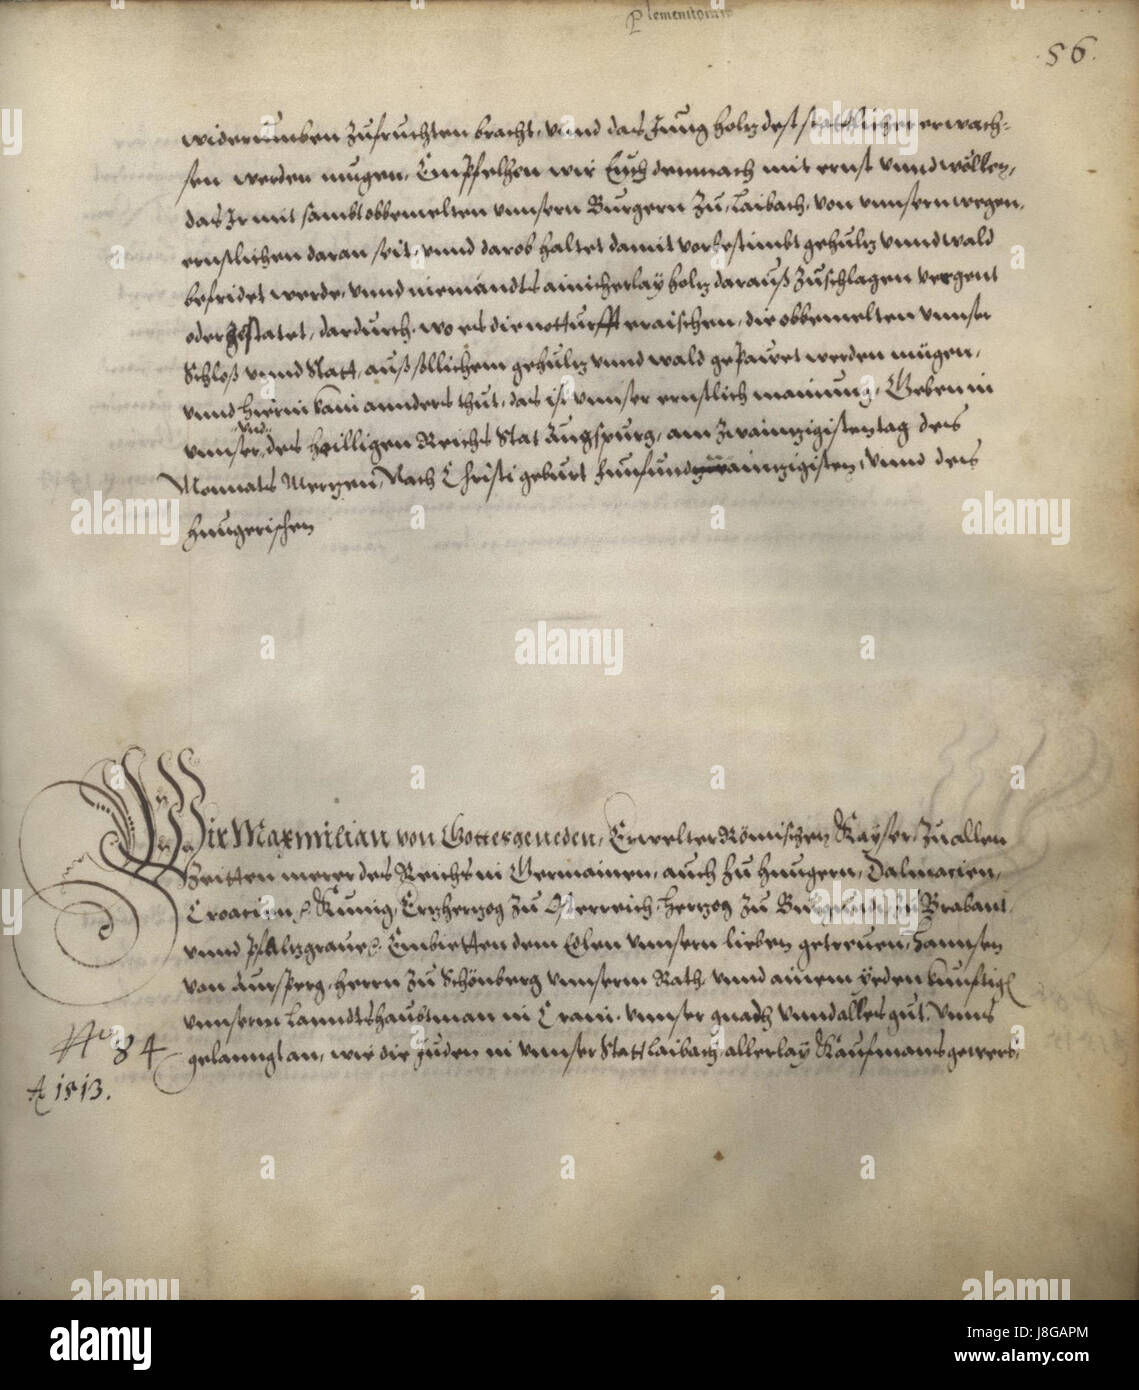 Plemenitoran
56.
widerumben zufruchten bracht, vnnd das Jung holz dest stattlicher erwach=
sen werden mugen, Empfelhen wir Euch demnach mit ernst vnnd wöllen,
das Ir mit sambt obbemelten vnnsern Burgern zu, Laibach, von vnnsern wegen,
ernstlichen daran seit, vnnd darob haltet damit vorbestimbt gehulz vnnd wald
befridet werde, vnnd niemandts ainicherlay holz darauß zuschlagen vergent
oder gestatet, dardurch, wo es die notturfft eraischen, die obbemelten vnnser
Schloß vnnd Statt, auß sollichem gehulz vnnd wald gepawet werden mügen,
vnnd hierin kain annders thut, das ist vnnser ernstlich mainung, Geben in
vnnser, vnd des heilligen Reichs Stat Augspurg, am zwainzigisten tag des
Monnats Merzen, Nach Christi geburt funfund zwainzigisten, vnnd des
hunngerischen
Wir Maxmilian von Gottes geneden, Erwelter Römischer Kayser, zu allen
Zeitten merer des Reichs in Germanien, auch zu Hunngern, Dalmacien,
Croacien, Kunig, Erzherzog zu Osterreich, Herzog zu Burgundi, zu Brabant
vnnd Pfalzgraue, Embietten dem Edlen vnnsern lieben getreuen, Hannsen
von Aursperg, Herrn zu Schönberg vnnserm Rath, vnnd ainem yeden kunftig
vnnserm Lanndtshaubtman in Crain, vnnser gnad, vnnd alles gut, Vnns
gelanngt an, wie die Juden in vnnser Statt Laibach, allerlay Kaufmansgewerb,
No 84
A 1513.
alamy
Image ID: J8GAPM
www.alamy.com